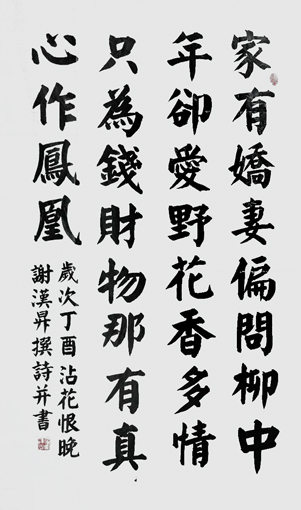 家有嬌妻偏問柳中
年卻愛野花香多情
只為錢財物那有真
心作鳳凰
歲次丁酉沾花恨晚
謝漢昇撰詩并書